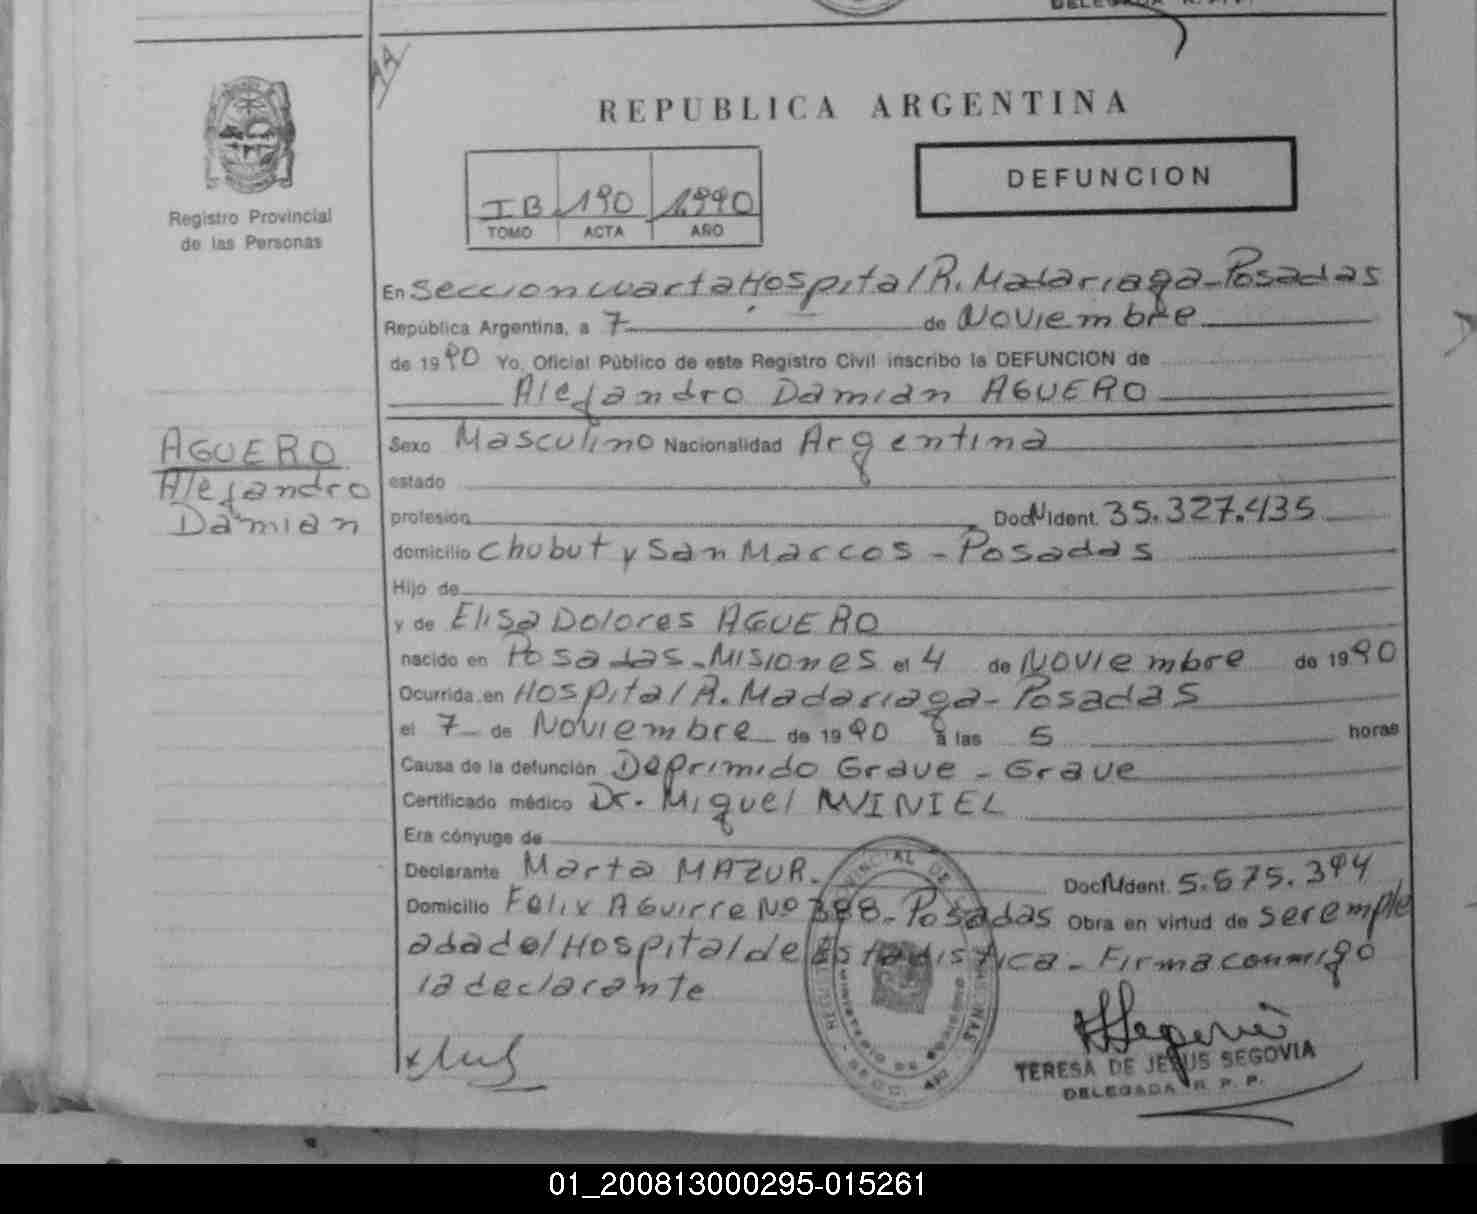 REPUBLICA ARGENTINA
Registro Provincial
de las Personas
IB 190 1990
TOMO ACTA AÑO
DEFUNCION
En Seccion cuarta Hospital R. Madariaga - Posadas
República Argentina, a 7 de Noviembre
de 1990 Yo, Oficial Público de este Registro Civil inscribo la DEFUNCION de
Alejandro Damian AGUERO
AGUERO
Alejandro
Damian
Sexo Masculino Nacionalidad Argentina
estado
profesión Doc N Ident. 35.327.435
domicilio Chubut y San Marcos - Posadas
Hijo de
y de Elisa Dolores AGUERO
nacido en Posadas - Misiones el 4 de Noviembre de 1990
Ocurrida en Hospital R. Madariaga - Posadas
el 7 de Noviembre de 1990 a las 5 horas
Causa de la defunción Deprimido Grave - Grave
Certificado médico Dr. Miguel WINIEL
Era cónyuge de
Declarante Marta MAZUR. Doc N Ident. 5.675.394
Domicilio Felix Aguirre Nº 388 - Posadas Obra en virtud de ser emple
ada del Hospital de Estadistica - Firma conmigo
la declarante
TERESA DE JESUS SEGOVIA
DELEGADA R. P. P.
01_200813000295-015261